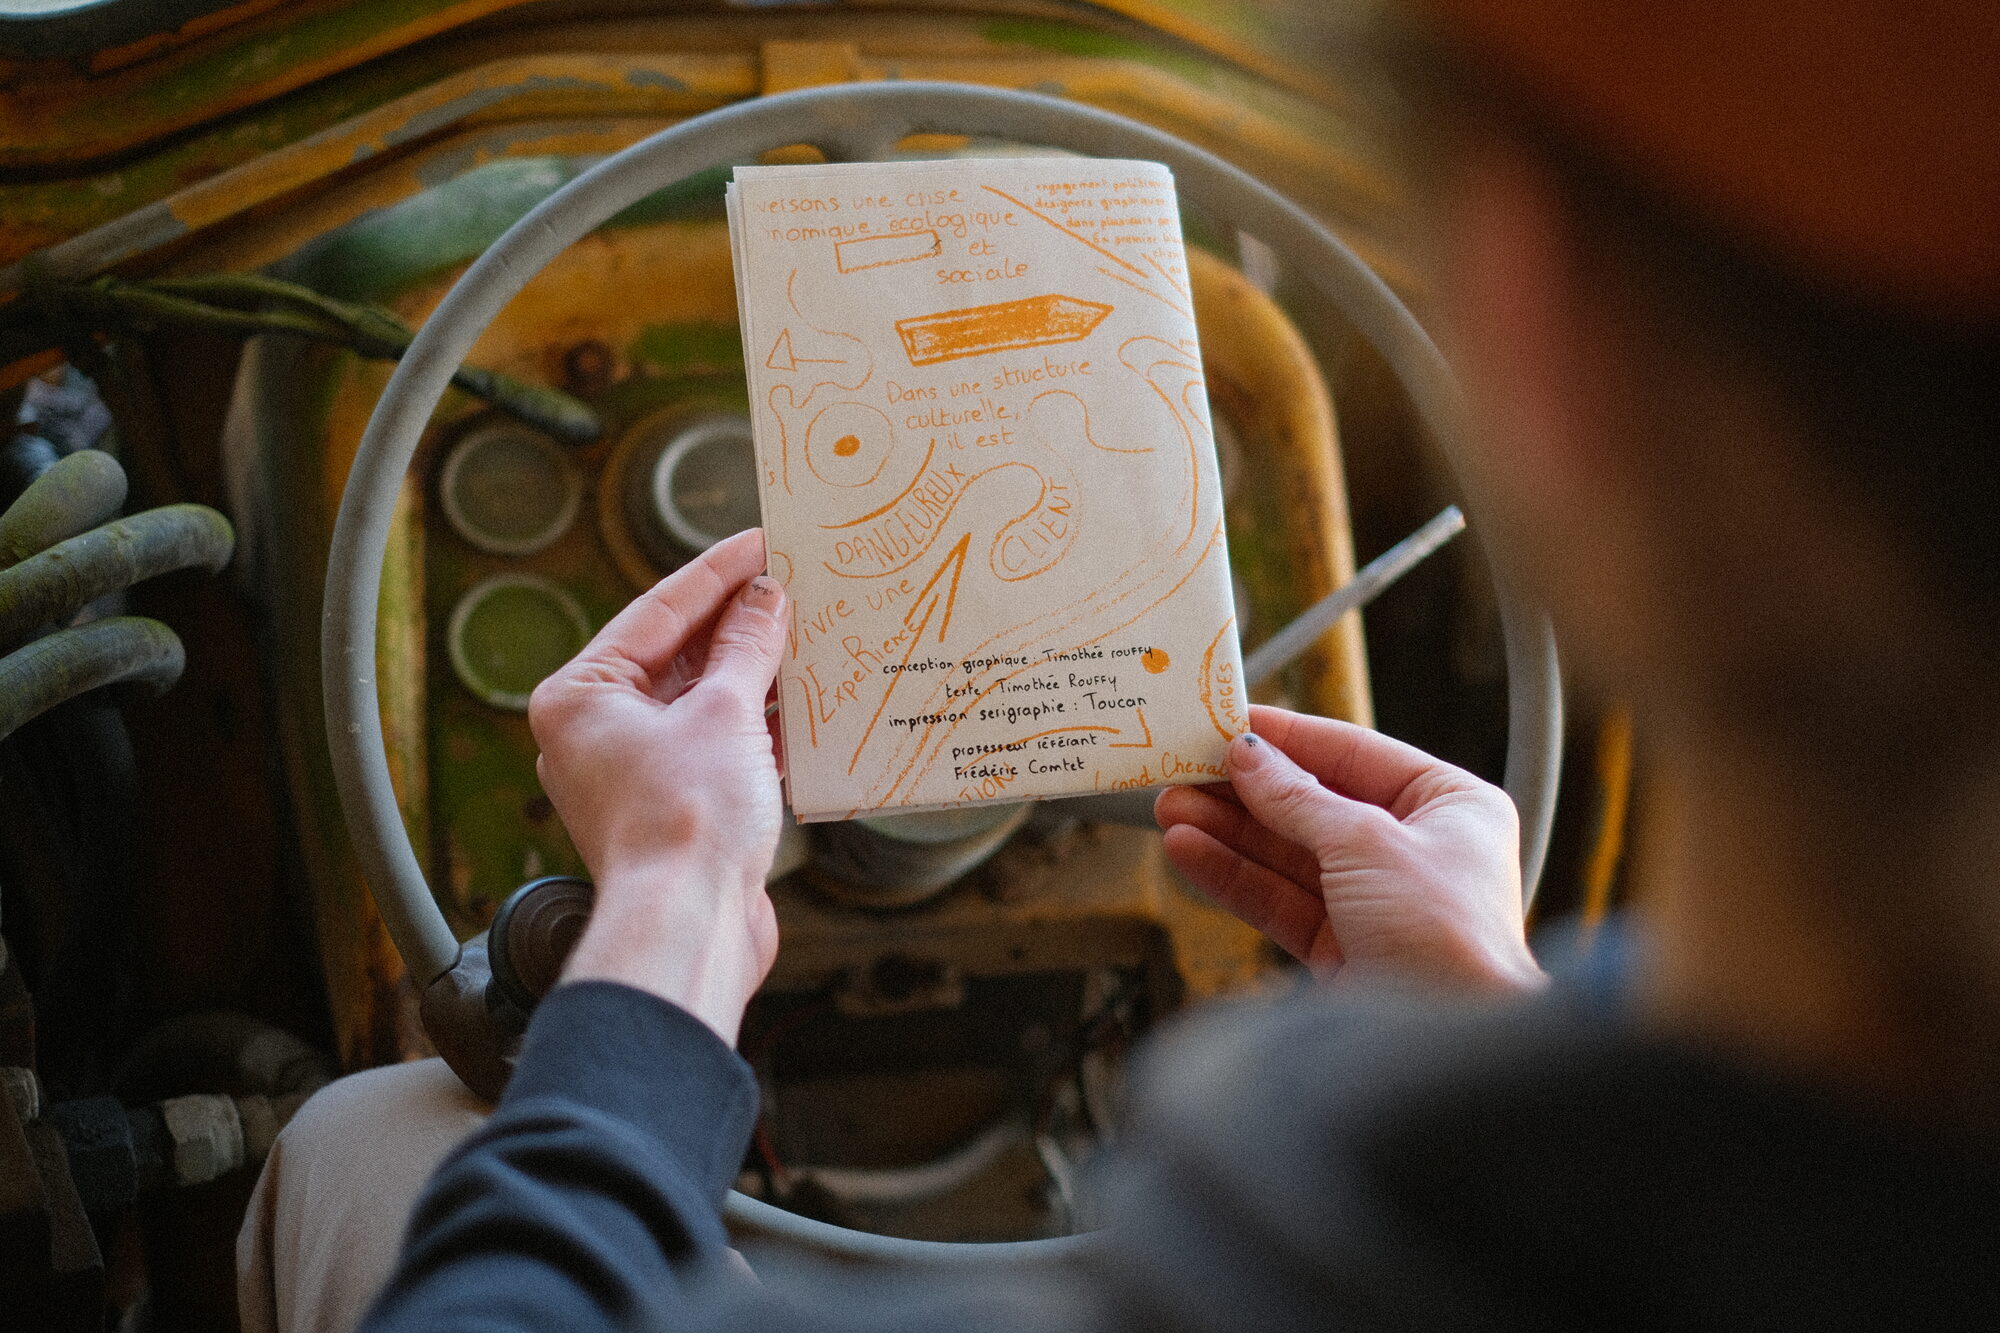 versons une crise
nomique. ecologique
et
sociale
engagement
designers graphiques
dans plusieurs
En premier
Dans une structure
culturelle,
il est
DANGEUREUX
CLIENT
Vivre une
Expérience
conception graphique : Timothée rouffy
texte : Timothée Rouffy
impression serigraphie : Toucan
professeur référant
Frédéric Comtet
MAGES
TION
Grand Cheval